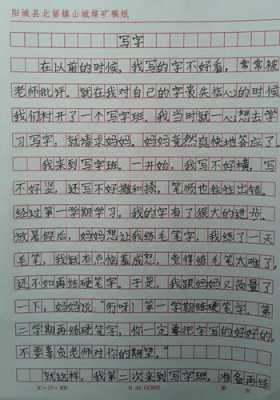 阳城县北留镇山城煤矿稿纸
写字
在以前的时候，我写的字不好看，常常被
老师批评。就在我对自己的字丧失信心的时候
我们村开了一个写字班。我当时就一心想去学
习写字，就请求妈妈。妈妈竟然爽快地答应了。
我来到写字班。一开始，我写不好横，写
不好竖，还写不好撇和捺，笔顺也往往出错。
经过第一学期学习，我的字有了很大的进步。
放暑假后，妈妈想让我练毛笔字。我练了一天
毛笔，我就有点恼羞成怒，觉得练毛笔太难了，
还不如再练硬笔字。于是，我跟妈妈又商量了
一下，妈妈说：“行呀！第一学期练硬笔字，第
二学期再练硬笔字，你一定要把字写的好好的，
不要辜负老师对你的期望。”
就这样，我第二次来到写字班，准备再练